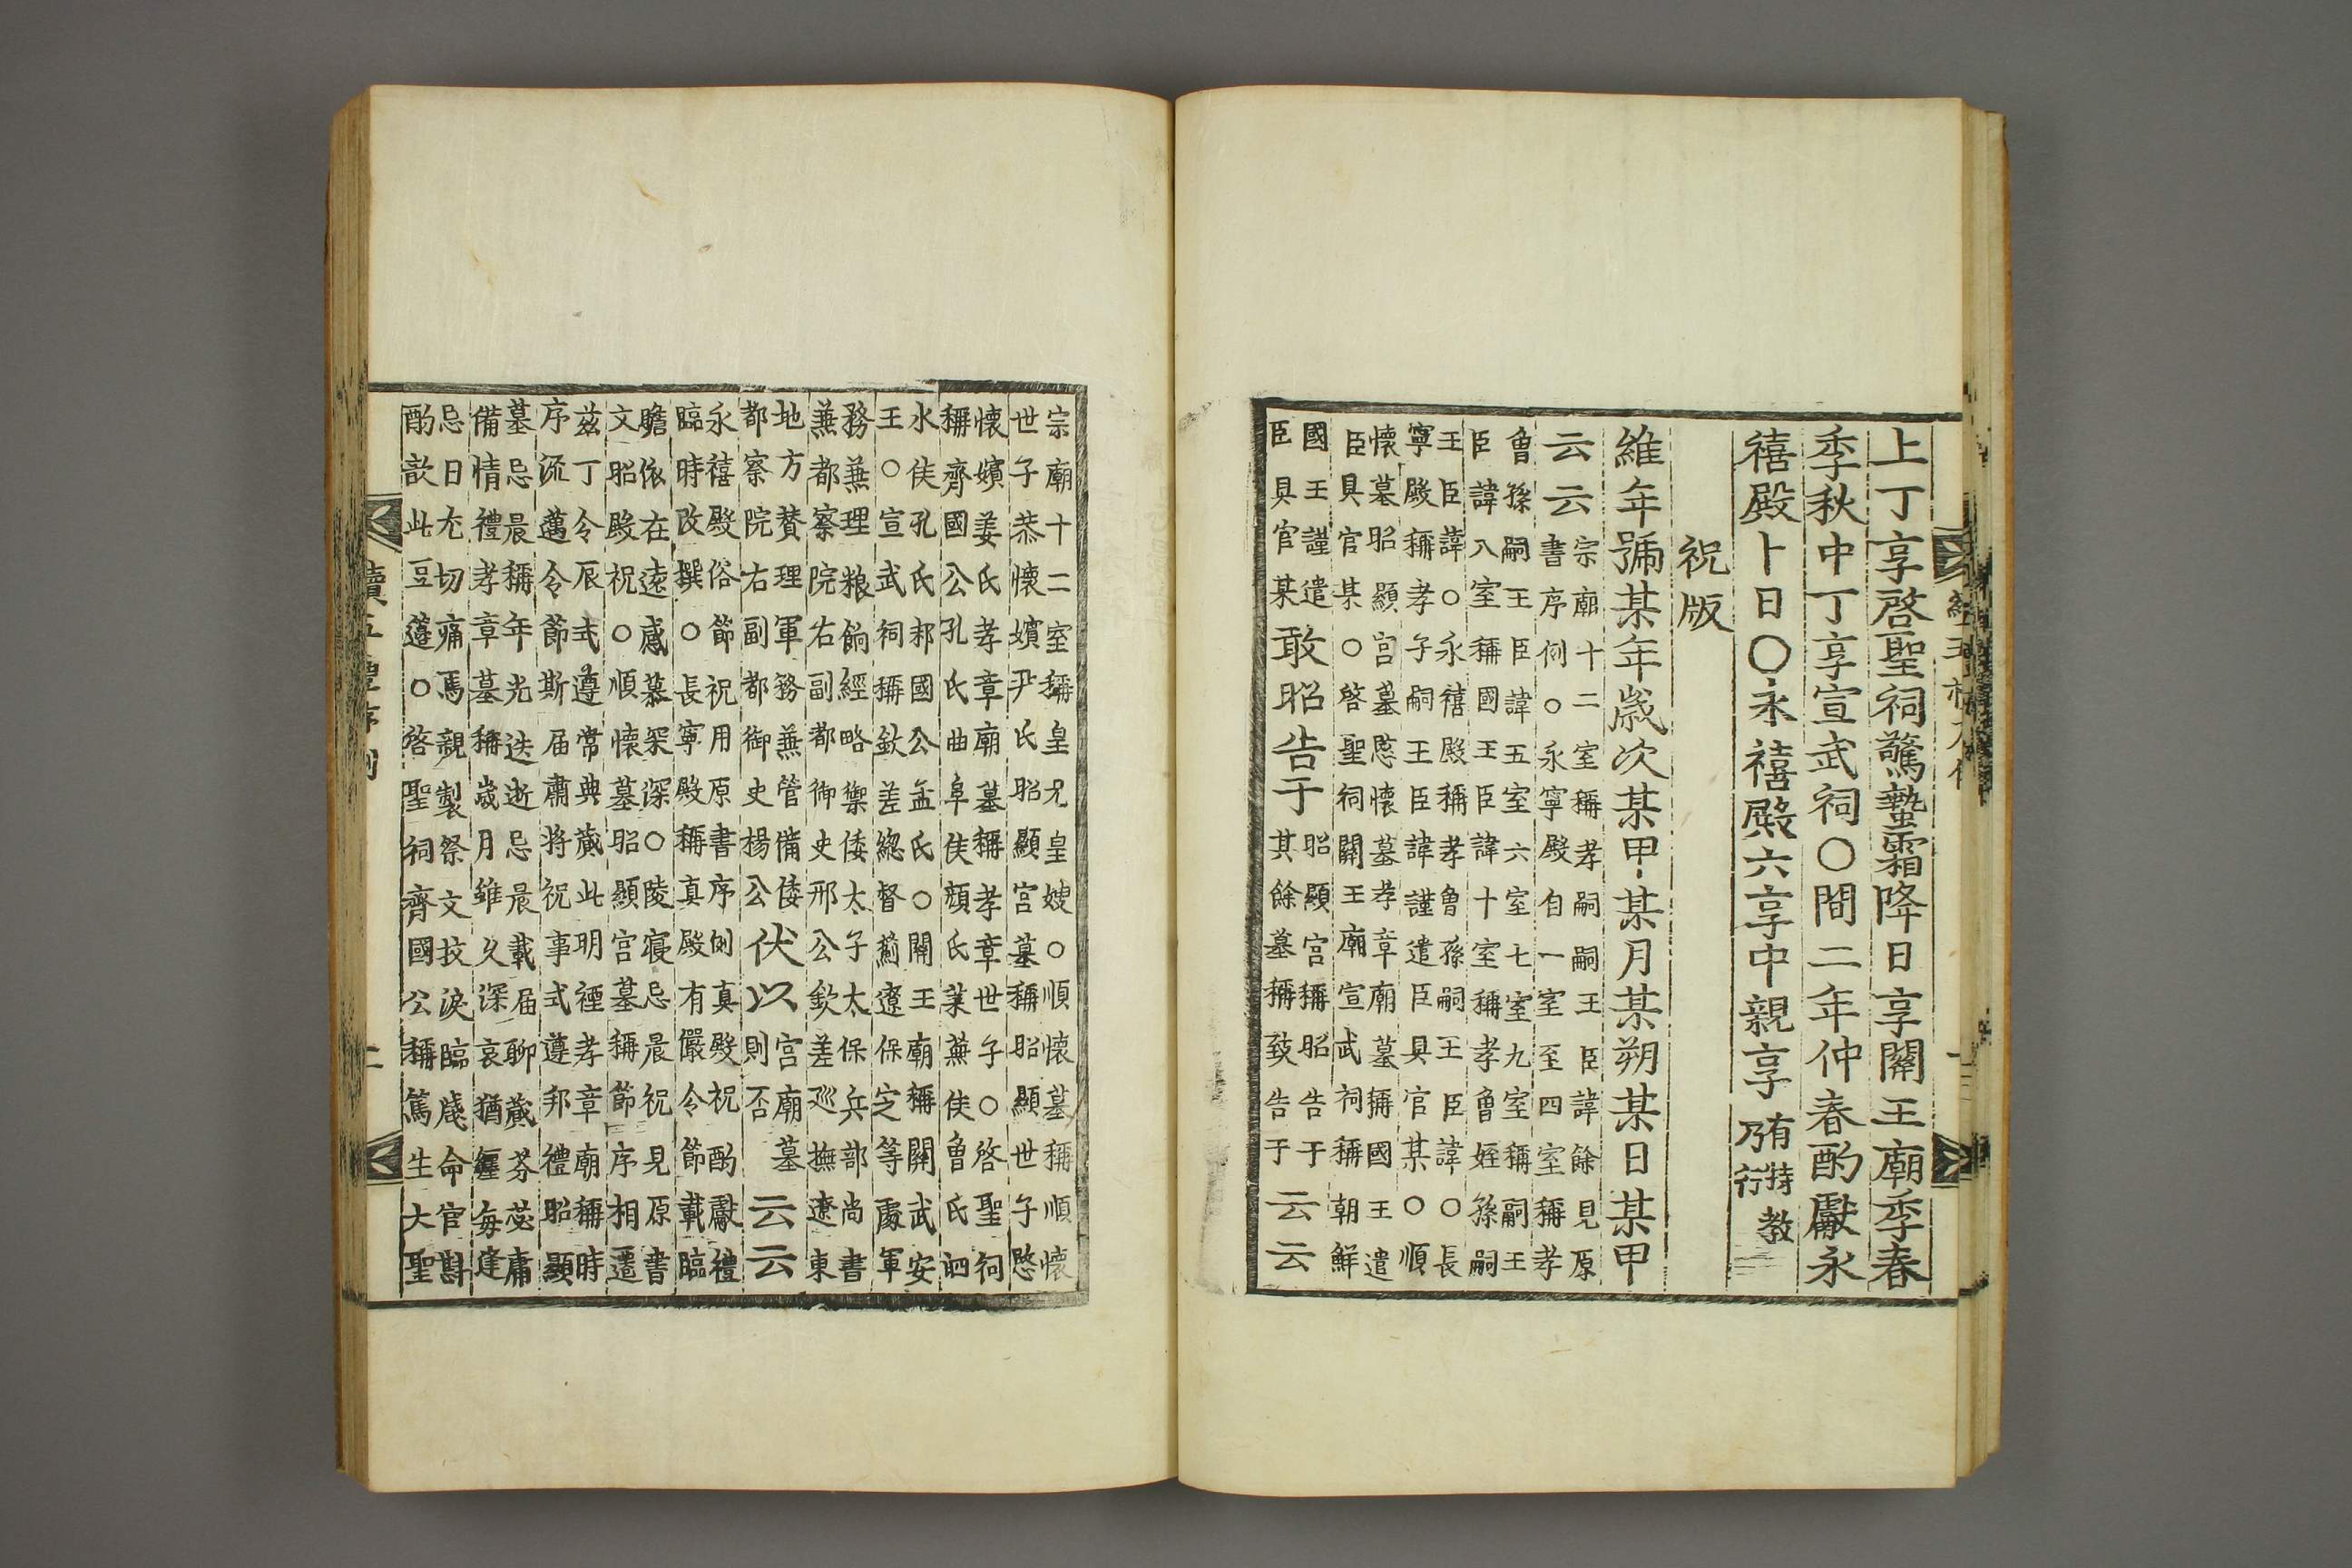 上丁享啓聖祠驚蟄霜降日享關王廟季春
季秋中丁享宣武祠〇間二年仲春酌獻永
禧殿卜日〇永禧殿六享中親享有特教乃行
祝版
維年號某年歲次某甲某月某朔某日某甲
云云宗廟十二室稱孝嗣嗣王臣諱餘見原
書序例〇永寧殿自一室至四室稱孝
曾孫嗣王臣諱五室六室七室九室稱嗣王
臣諱八室稱國王臣諱十室稱孝曾姪孫嗣
王臣諱〇永禧殿稱孝曾孫嗣王臣諱〇長
寧殿稱孝子嗣王臣諱謹遣臣具官某〇順
懷墓昭顯宮墓愍懷墓孝章廟墓稱國王遣
臣具官某〇啓聖祠關王廟宣武祠稱朝鮮
國王謹遣
臣具官某敢昭告于昭顯宮稱昭告于
其餘墓稱致告于云云
宗廟十二室稱皇兄皇嫂〇順懷墓稱順懷
世子恭懷嬪尹氏昭顯宮墓稱昭顯世子愍
懷嬪姜氏孝章廟墓稱孝章世子〇啓聖祠
稱齊國公孔氏曲阜侯顔氏萊蕪侯曾氏泗
水侯孔氏邾國公孟氏〇關王廟稱關武安
王〇宣武祠稱欽差總督薊遼保定等處軍
務兼理粮餉經略禦倭太子太保兵部尚書
兼都察院右副都御史邢公欽差巡撫遼東
地方贊理軍務兼管備倭
都察院右副都御史楊公伏以宮廟墓
則否云云
永禧殿俗節祝用原書序例真殿祝酌獻禮
臨時改撰〇長寧殿稱真殿有儼令節載臨
瞻依在遠感慕采深〇陵寢忌晨祝見原書
文昭殿祝〇順懷墓昭顯宮墓稱節序相遷
玆丁令辰式遵常典蕆此明禋孝章廟稱時
序流邁令節斯届肅將祝事式遵邦禮昭顯
墓忌晨稱年光迭逝忌晨載届聊蕆芬苾庸
備情禮孝章墓稱歲月雖久深哀猶纒每逢
忌日尤切痛焉親製祭文抆淚臨牋命官斟
酌歆此豆籩〇啓聖祠齊國公稱篤生大聖